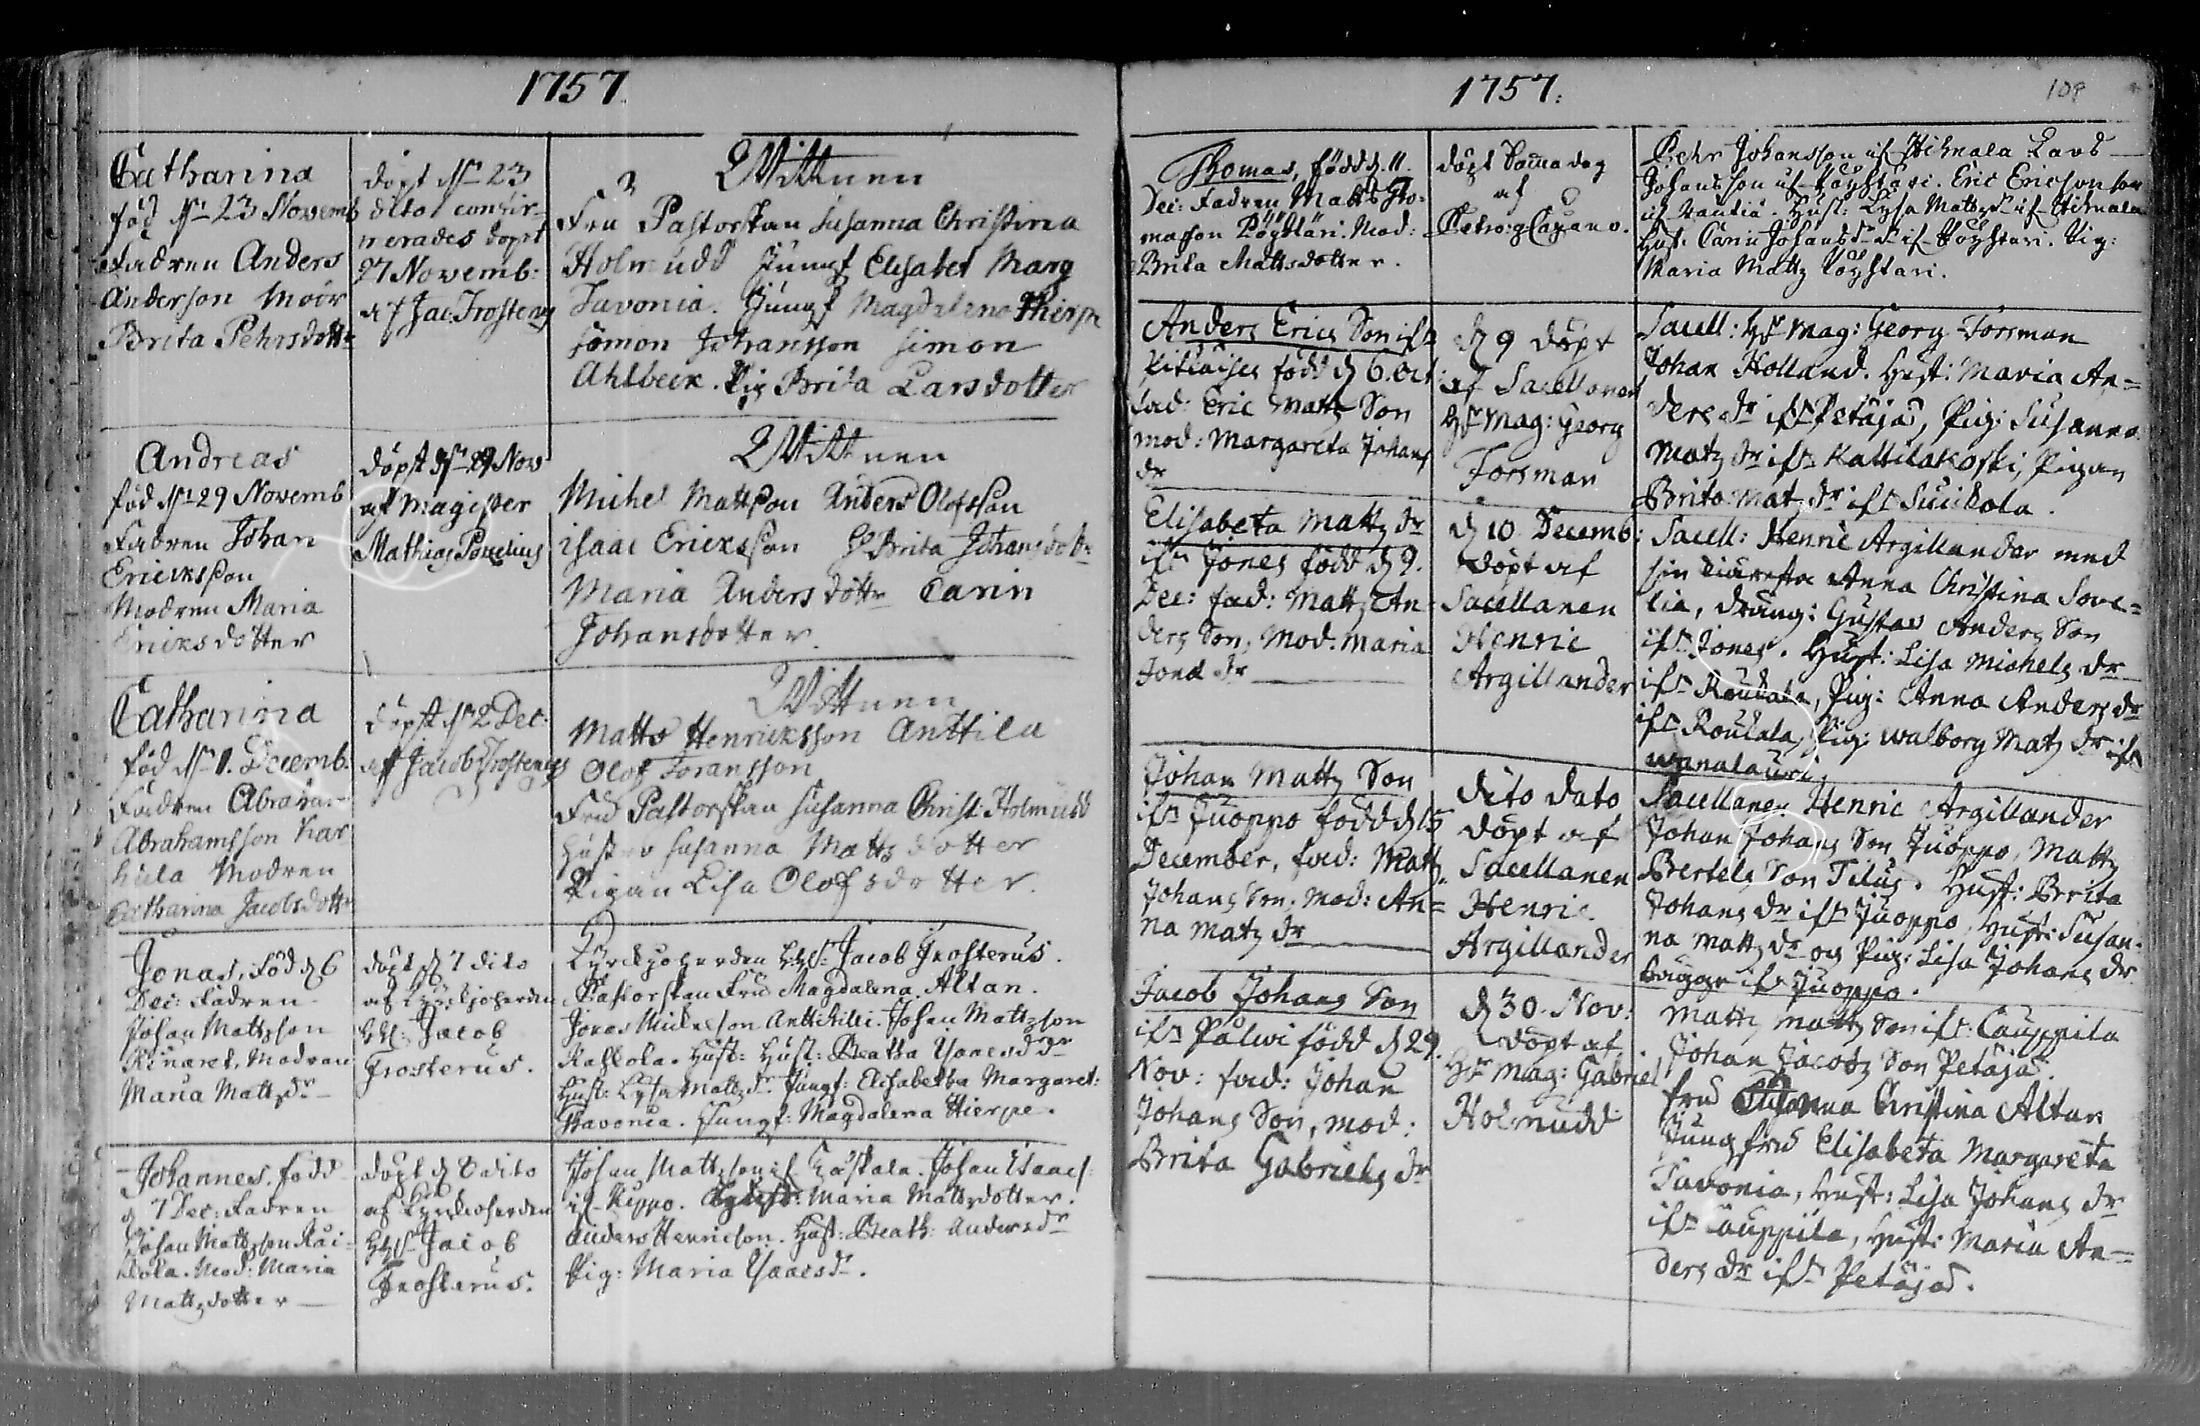 1757
Catharina
föd dn 23 Novemb
Fadren Anders
Anderson Moir
Brita Pehrsdottr
döpt dn 23
dito
döpt
27 Novemb:
af Jac: Frosterus
Wittnen
Fru Pastorskan Susanna Christina
Holmudd Jungf Elisabet Marg
Tavonia. Jungf Magdalena Hierpe
Simon Johansson Simon
Ahlbeck. Pig Brita Larsdotter
Andreas
föd dn 29 Novemb
Fadren Johan
Ericksson
Modren Maria
Ericksdotter
döpt dn 29 Nov
af Magister
Mathias
Wittnen
Michel Mattsson Anders Olofsson
Isaac Ericksson Brita Johansdotr
Maria Andersdottr Carin
Johansdotter.
Catharina
föd dn 1. Decemb.
Fadren Abraham
Abrahamsson Kar
hula Modren
Catharina Jacobsdottr
döpt dn 2 Dec:
af Jacob Frosterus
Wittnen
Matts Henricksson Anttila
Olof Joransson
Fru Pastorskan Susanna Christ: Holmudd
Hustro Susanna Matts dotter
Pigan Lisa Olofsdotter.
Jonas, född d 6
Dec: Fadren
Johan Mattzson
Kinaret, Modren
Maria Mattzdr
döpt d 7 dito
af Kyrckjoherden
HH: Jacob
Frosterus.
Kyrckjoherden HH: Jacob Frosterus.
Pastorskan Fru Magdalena Altan.
Jonas Michelson Anttikilli. Johan Mattzson
Raskola. Hust: Hust: Beatha Isaacsdr
Hust: Lisa Mattzdr. Jungf: Elisabetha Margaret:
Tavonia. Jungf: Magdalena Hierpe.
Johannes, född
d 7 Dec: Fadren
Johan Mattzson Rai-
kola. Mod: Maria
Mattzdotter
döpt d 8 dito
af Kyrckoherden
HH: Jacob
Frosterus.
Johan Mattzson if Raskala. Johan Isaacs:
if Kippo. Maria Mattzdotter.
Anders Henricson. Hust: Beath: Andersdr
Pig: Maria Isaacsdr.
1757:
109
Thomas, född d. 11.
Dec: Fadren Matts Tho-
masson Pöyhtäri. Mod:
Brita Mattsdotter.
döpt Samma dag
af
Petro: g: Cajano.
Pehr Johansson if Hihnala Lars
Johansson if Pöyhtäri. Eric Ericson
if Rautia. Hust: Lisa Mattzdr if Hihnala
Hust: Carin Johansdr if Pöyhtari. Pig:
Maria Mattz Pöyhtari.
Anders Erics Son ifr
född d 6. Oct
fad: Eric Mattz Son
mod: Margareta Johans
dr
d 9 döpt
af Sacellanen
Hr Mag: Georg
Forsman
Sacell: Hr Mag: Georg Forsman
Johan Holland. Hust: Maria An-
ders dr ifr Petäjä, Pig: Susanna
Matz dr ifr Kattilakoski, Pigan
Brita Mat: dr ifr Suiskola.
Elisabeta Mattz dr
ifr Jones född d 9.
Dec: fad: Mattz An
ders Son, Mod. Maria
Jona dr
d 10 Decemb:
döpt af
Sacellanen
Henric
Argillander
Sacell: Henric Argillander med
sin käresta Anna Christina Sove-
lia, dräng: Gustav Anders Son
ifr Jones. Hust: Lisa Michels dr
ifr Roukala, Pig: Anna Anders dr
ifr Roukala, Pig: Walborg Matz dr ifr
Wanalauri,
Johan Mattz Son
ifr Juoppo född d 15
December, fad: Mattz
Johans Son; Mod: An-
na Matz dr
dito dato
döpt af
Sacellanen
Henric
Argillander
Sacellanen Henric Argillander
Johan Johans Son Juoppo, Mattz
Bertels Son Tilus. Hust: Brita
Johans dr ifr Juoppo, Hust: Susan-
na Mattz dr og Pig: Lisa Johans dr
begge ifr Juoppo.
Jacob Johans Son
ifr Palwi född d 29.
Nov: fad: Johan
Johans Son, mod:
Brita Gabriels dr
d 30. Nov:
döpt af
Hr Mag: Gabriel
Holmudd
Mattz Mattz Son ifr: Cauppila
Johan Jacobs Son Petäjä.
fru Susanna Christina Altan
Jungfru Elisabeta Margareta
Tavonia, Hust: Lisa Johans dr
ifr Cauppila, Hust: Maria An-
ders dr ifr Petäjä.